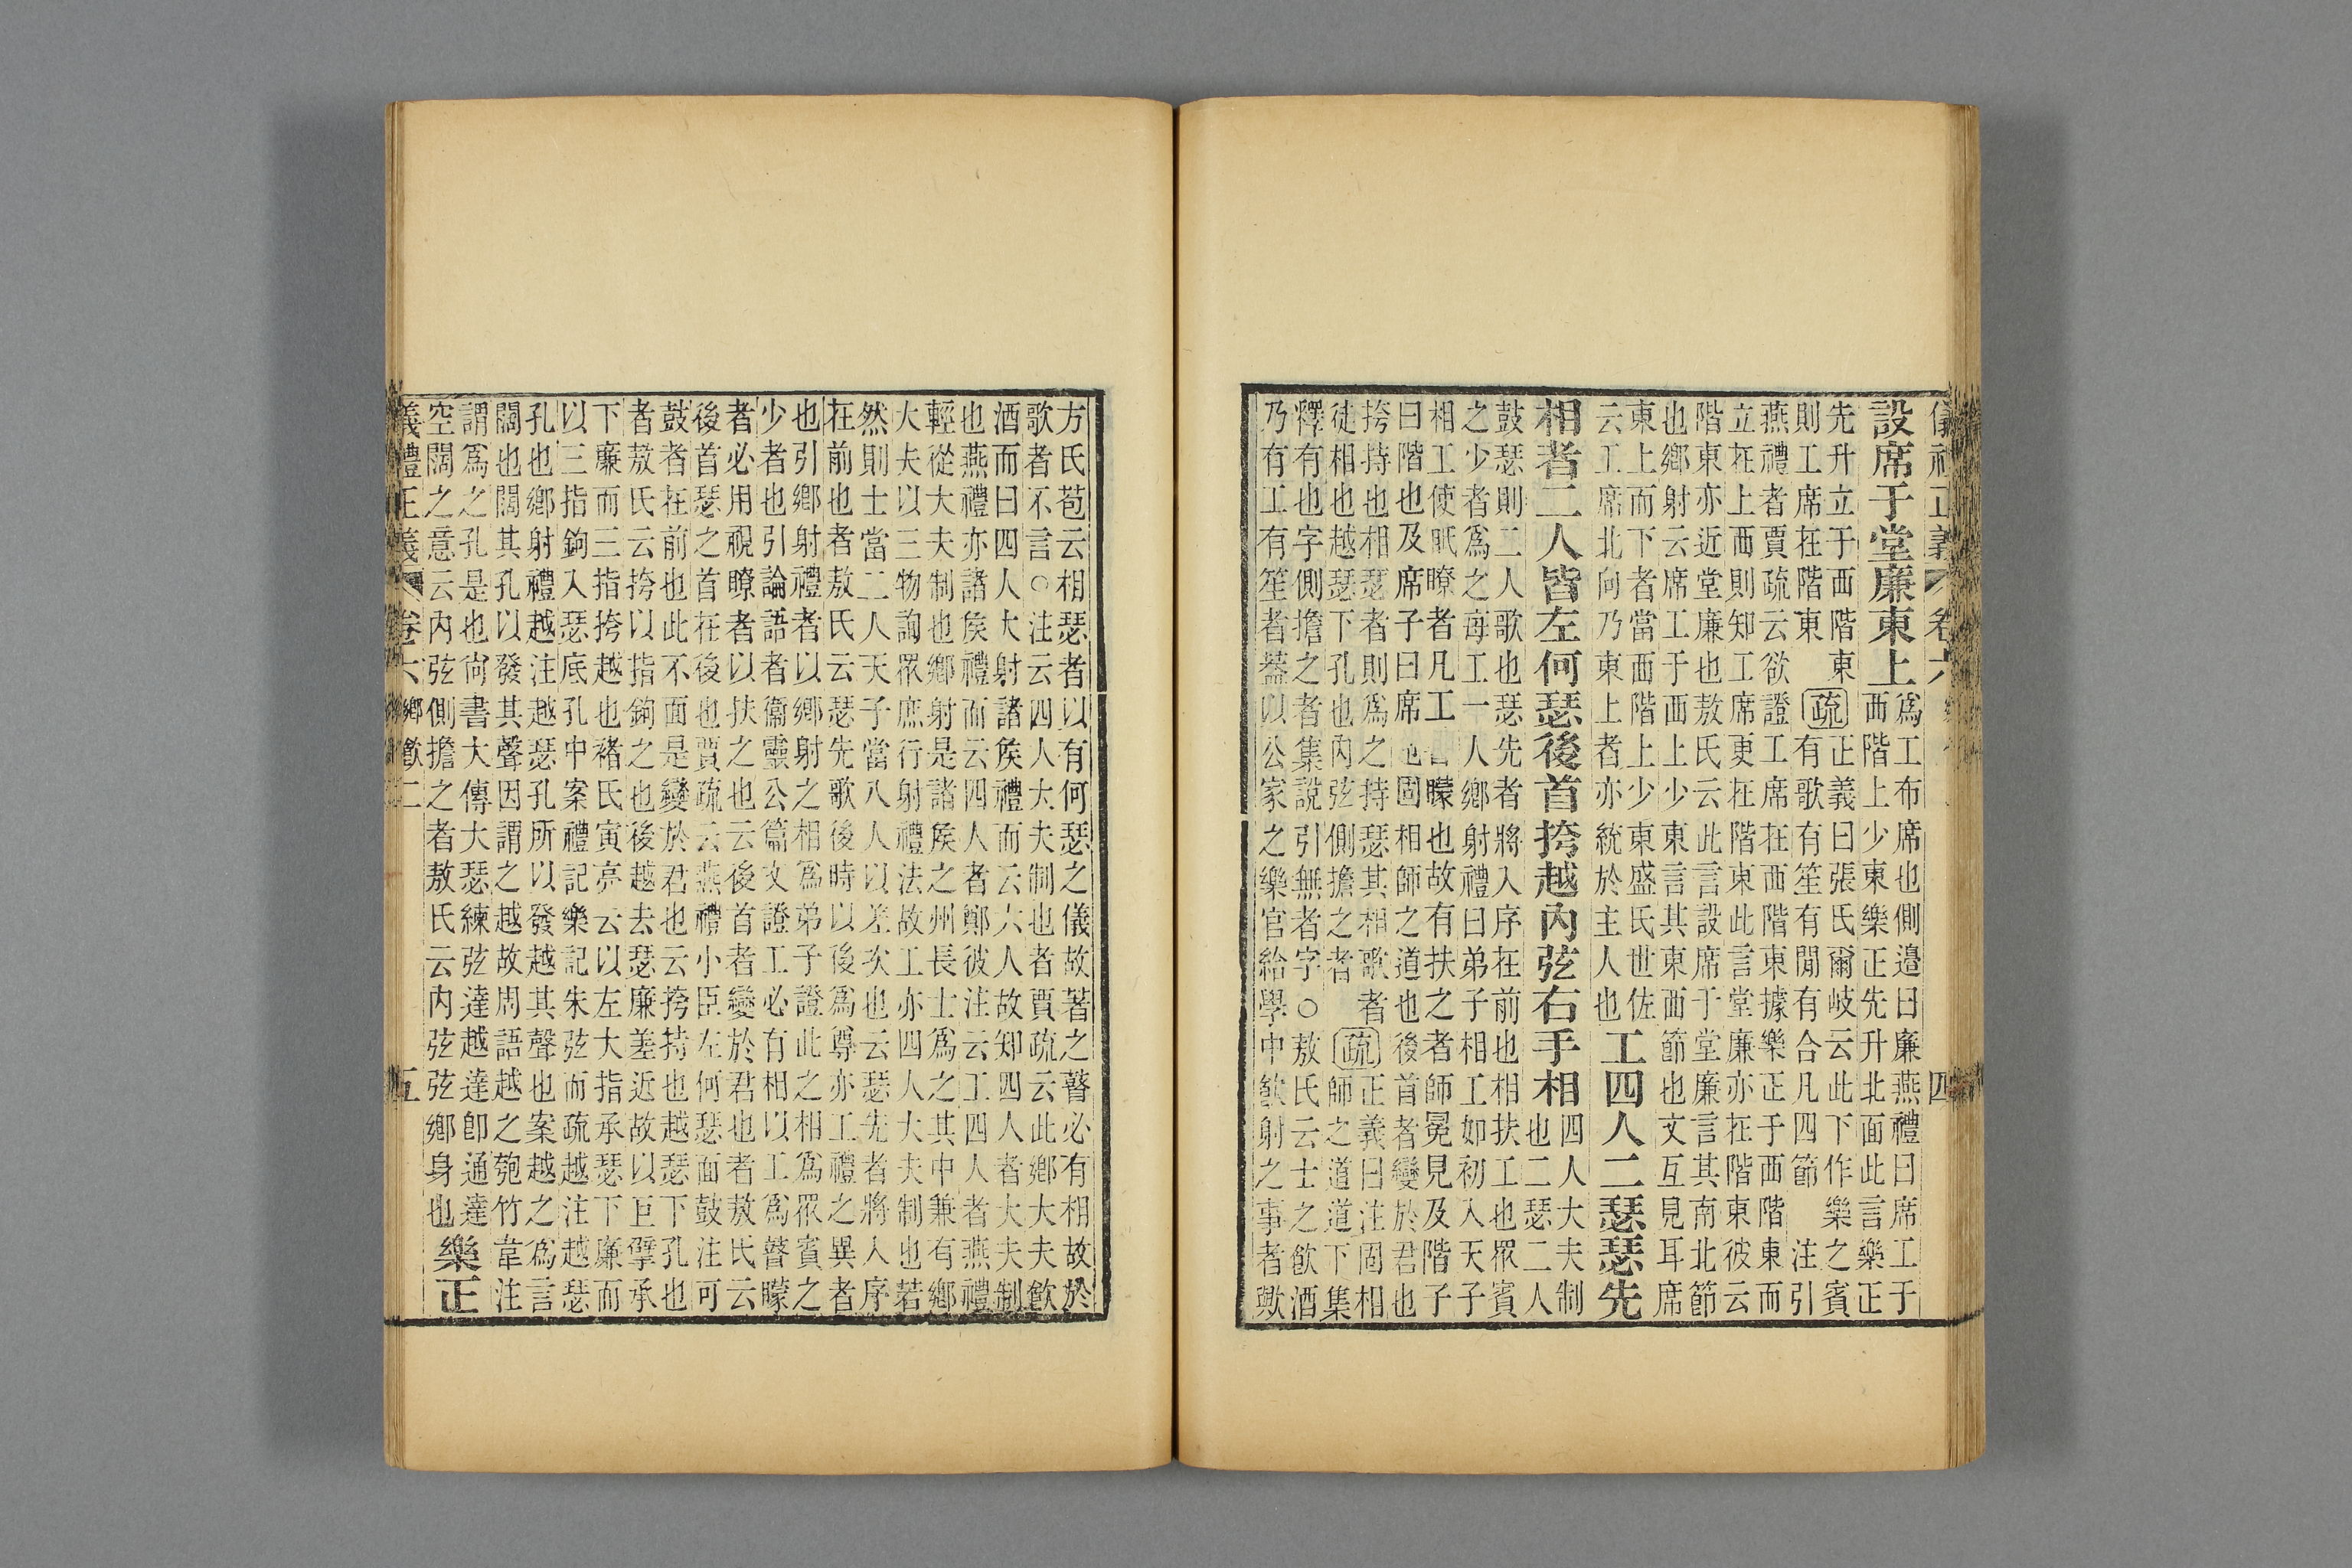 儀禮正義 卷六 四
設席于堂廉東上
爲工布席也側邊曰廉燕禮曰席工于
西階上少東樂正先升北面此言樂正
先升立于西階東
則工席在階東
疏
正義曰張氏爾岐云此下作樂之賓
有歌有笙有閒有合凡四節 注引
燕禮者賈疏云欲證工席在西階東據樂正于西階東而
立在上西則知工席更在階東此言堂廉亦在階東彼云
階東亦近堂廉也敖氏云此言設席于堂廉言其南北節
也鄉射云席工于西上少東言其東西節也文互見耳席
東上而下者當西階上少東盛氏世佐
云工席北向乃東上者亦統於主人也
工四人二瑟瑟先
相者二人皆左何瑟後首挎越內弦右手相
四人大夫制
也二瑟二人
鼓瑟則二人歌也瑟先者將入序在前也相扶工也眾賓
之少者爲之每工一人鄉射禮曰弟子相工如初入天子
相工使眂瞭者凡工瞽矇也故有扶之者師冕見及階子
曰階也及席子曰席也固相師之道也後首者變於君也
挎持也相瑟者則爲之持瑟其相歌者
徒相也越瑟下孔也內弦側擔之者
疏
正義曰注固相
師之道道下集
釋有也字側擔之者集說引無者字○敖氏云士之飲酒
乃有工有笙者葢以公家之樂官給學中飲射之事者歟
方氏苞云相瑟者以有何瑟之儀故著之瞽必有相故於
歌者不言○注云四人大夫制也者賈疏云此鄉大夫飲
酒而曰四人大射諸矦禮而云六人故知四人者大夫制
也燕禮亦諸矦禮而云四人者鄭彼注云工四人者燕禮
輕從大夫制也鄉射是諸矦之州長士爲之其中兼有鄉
大夫以三物詢眾庶行射禮法故工亦四人大夫制也若
然則士當二人天子當八人以差次也云瑟先者將入序
在前也者敖氏云瑟先歌後時以後爲尊亦工禮之異者
也引鄉射禮者以鄉射之相爲弟子證此之相爲眾賓之
少者也引論語者衞靈公篇文證工必有相以工爲瞽矇
者必用視瞭者以扶之也云後首者變於君也者敖氏云
後首瑟之首在後也賈疏云燕禮小臣左何瑟面鼓注可
鼓者在前也此不面是變於君也云挎持也越瑟下孔也
者敖氏云挎以指鉤之也後越去瑟廉差近故以巨擘承
下廉而三指挎越也褚氏寅亮云以左大指承瑟下廉而
以三指鉤入瑟底孔中案禮記樂記朱弦而疏越注越瑟
孔也鄉射禮越注越瑟孔所以發越其聲也案越之爲言
闊也闊其孔以發其聲因謂之越故周語越之匏竹韋注
謂爲之孔是也尙書大傳大瑟練弦達越達卽通達
空闊之意云內弦側擔之者敖氏云內弦弦鄉身也
樂正
義禮正義 卷六 鄉飲二 五